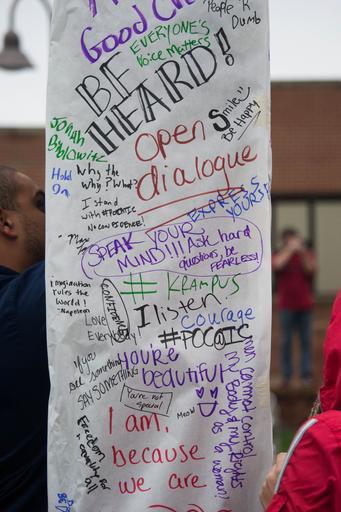 Good
EVERYONE'S
Voice Matters
People R
Dumb
BE
HEARD!
Smile
Be Happy
Open
dialogue
JONAH
Hold
On
Why the
Why? What?
I stand
with #POCATIC
No CONFIDENCE!
EXPRESS
YOURSELF
SPEAK YOUR
MIND!!! Ask hard
questions, be
FEARLESS!
# KRAMPUS
Imagination
rules the
World!
-Napoleon
CONFIDENCE
I listen
courage
Love
Everybody!
#POC@IC
If you
see something
SAY SOMETHING
you're
beautiful
You're not
special
Meow
I am,
because
we are
Freedom
& equality for
all
men cannot control
my body & my rights
as a woman!